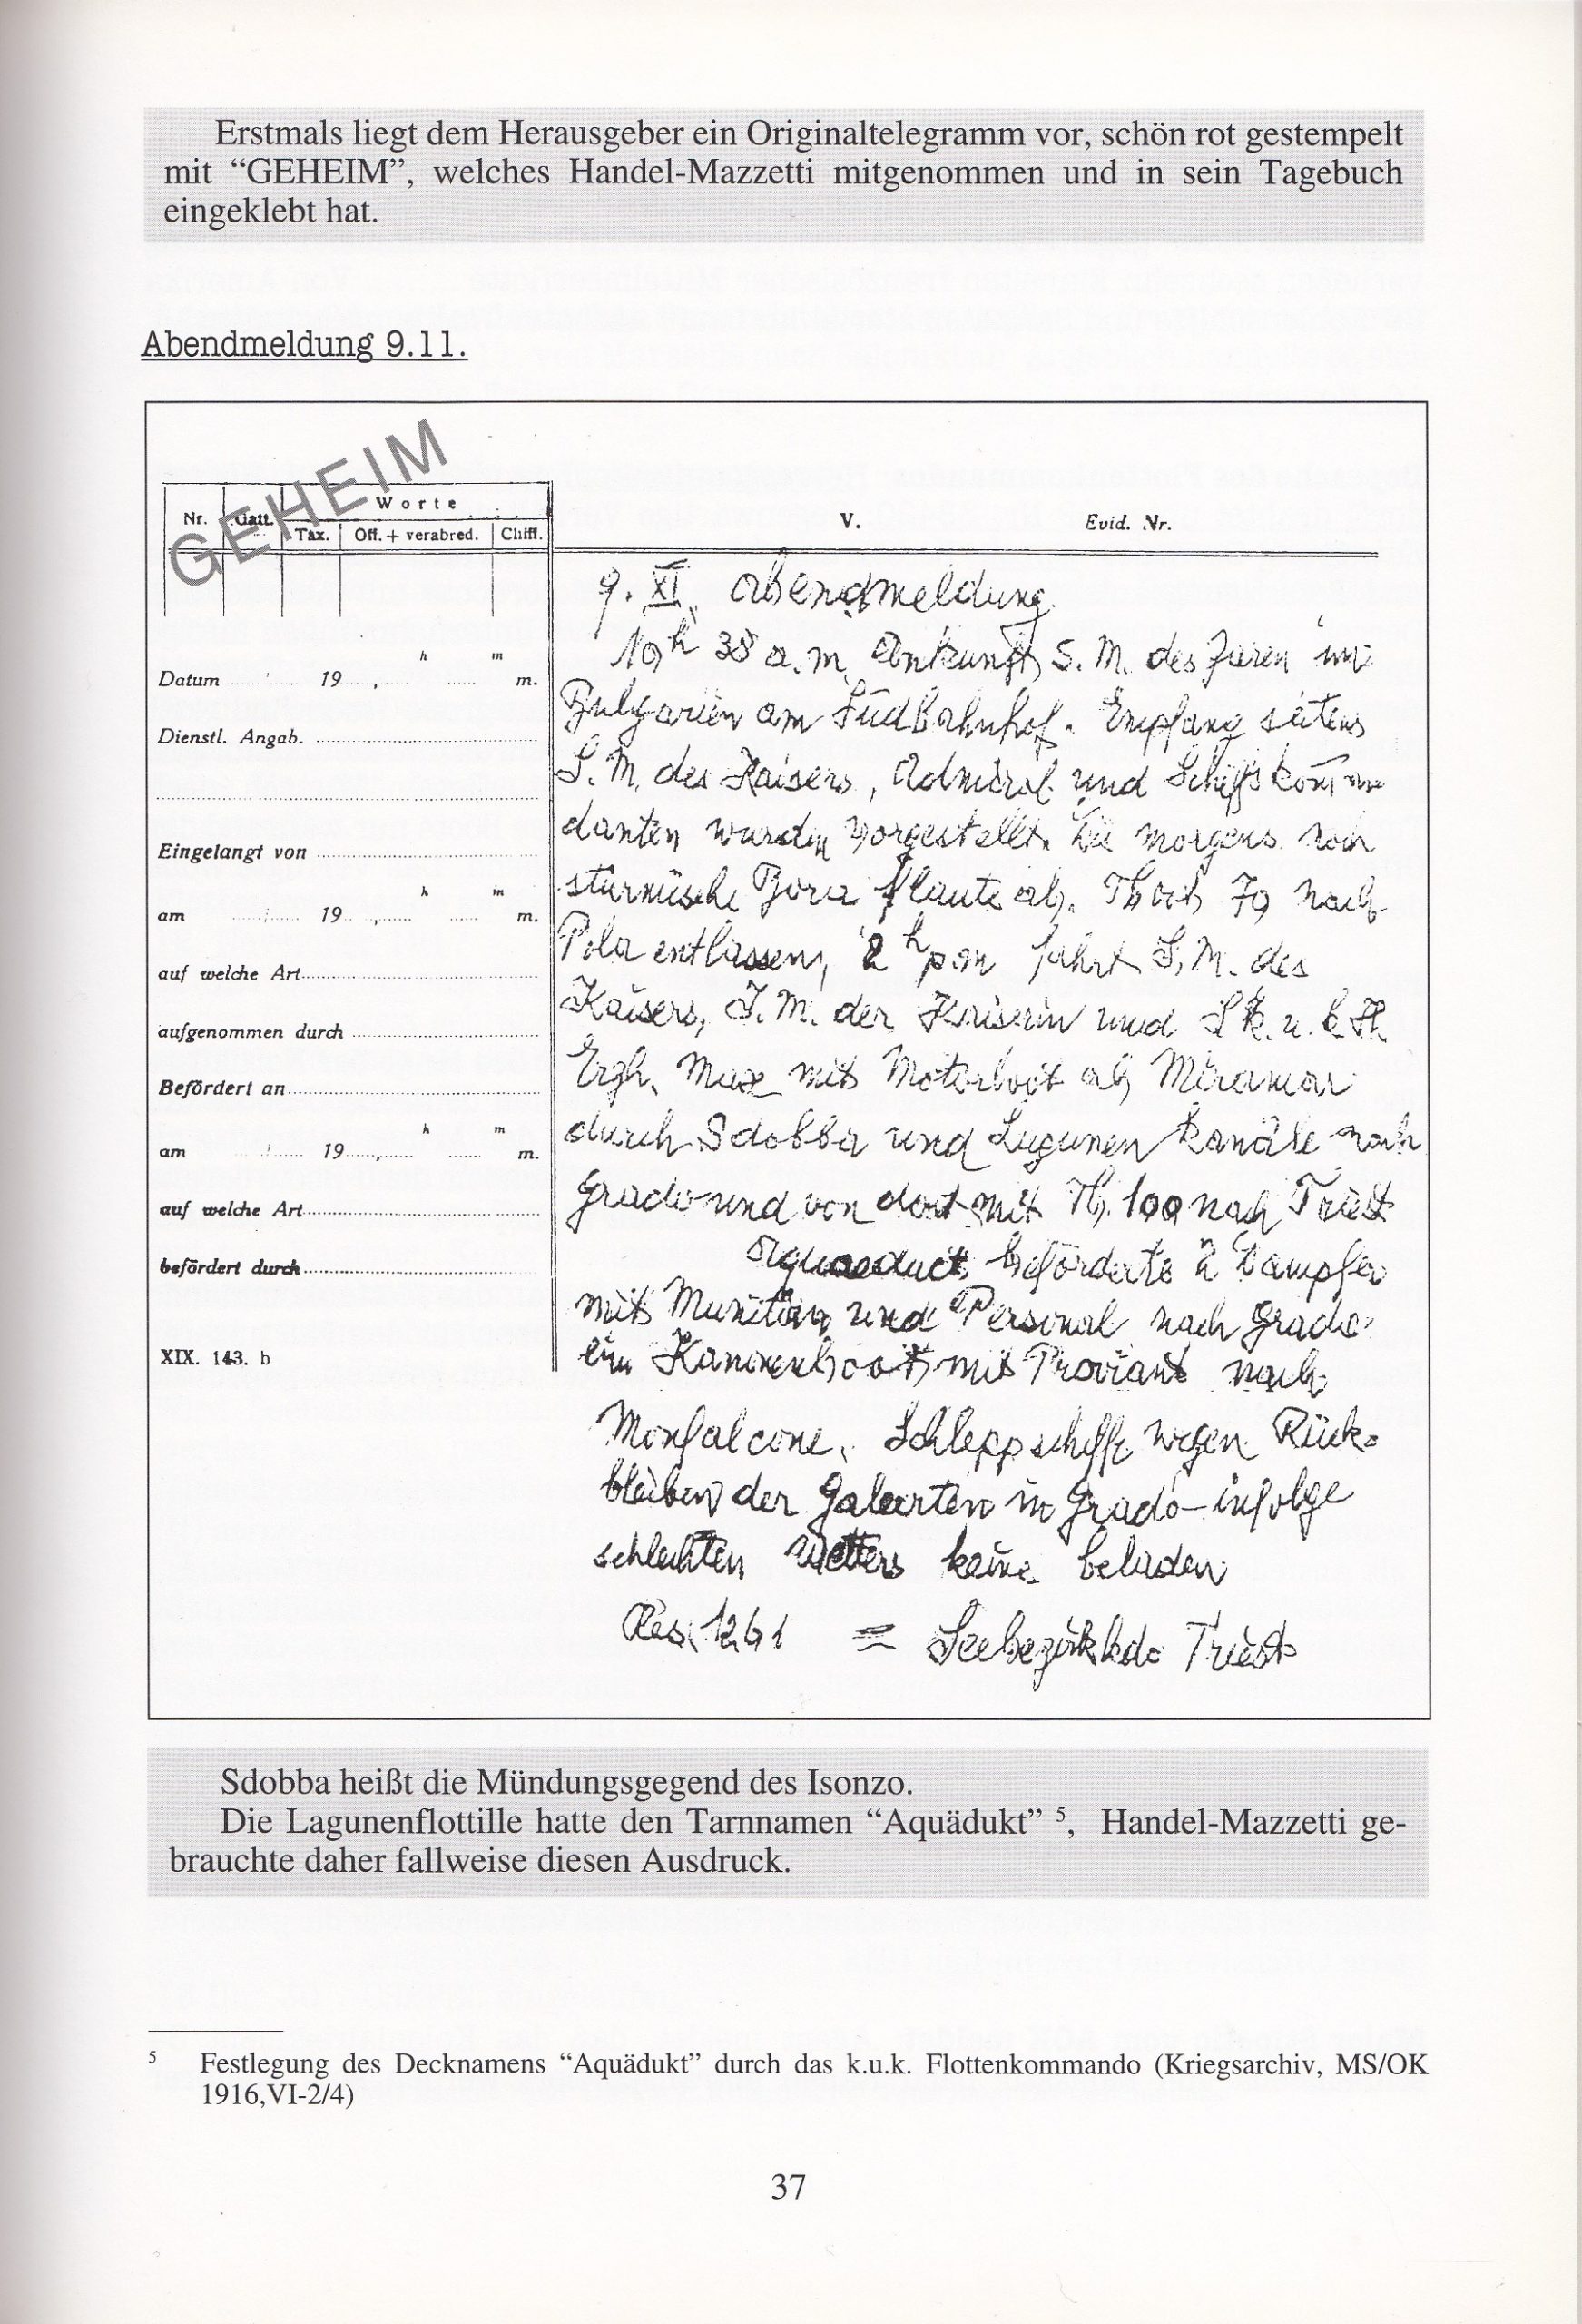 Erstmals liegt dem Herausgeber ein Originaltelegramm vor, schön rot gestempelt
mit “GEHEIM”, welches Handel-Mazzetti mitgenommen und in sein Tagebuch
eingeklebt hat.
Abendmeldung 9.11.
GEHEIM
Nr. Gatt. Worte
Tax. Off. + verabred. Chiff.
V. Evid. Nr.
h m
Datum ...... 19......, ...... m.
Dienstl. Angab. ......
Eingelangt von ......
h m
am ...... 19......, ...... m.
auf welche Art......
aufgenommen durch ......
Befördert an......
h m
am ...... 19......, ...... m.
auf welche Art......
befördert durch......
XIX. 143. b
9. XI. abendmeldung
10h 38 a.m. Ankunft S. M. des Zaren
Bulgarien am Südbahnhof. Empfang seitens
S. M. des Kaisers, Admiral und Schiffskomman
danten wurden vorgestellt. Die morgens noch
stürmische Bora flaute ab. Tboot 79 nach
Pola entlassen, 2h p.m fährt S. M. des
Kaisers, I. M. der Kaiserin und S. k. u. k. H.
Erzh. Max mit Motorboot ab Miramar
durch Sdobba und Lagunen kanäle nach
Grado und von dort mit Tb. 100 nach Triest
Aquaeduct beförderte 2 Dampfer
mit Munition und Personal nach Grado
ein Kanonenboot mit Proviant nach
Monfalcone. Schleppschiffe wegen Rück-
bleiben der in Grado infolge
schlechten Wetters keine beladen
Res. 1261 = Seebezirkkdo Triest
Sdobba heißt die Mündungsgegend des Isonzo.
Die Lagunenflottille hatte den Tarnnamen “Aquädukt” 5, Handel-Mazzetti ge-
brauchte daher fallweise diesen Ausdruck.
5 Festlegung des Decknamens “Aquädukt” durch das k.u.k. Flottenkommando (Kriegsarchiv, MS/OK
1916,VI-2/4)
37